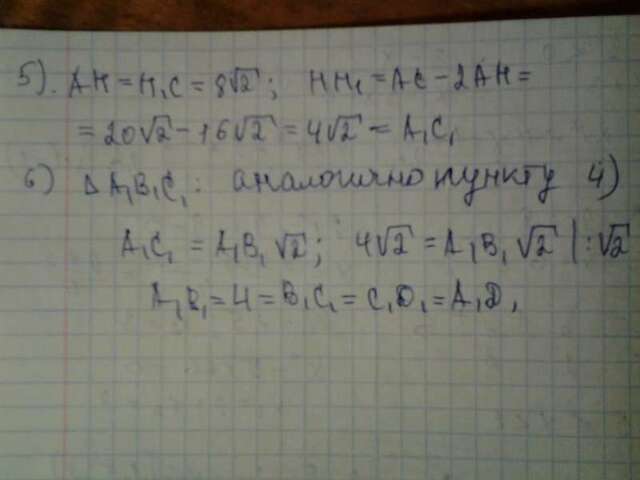 5). AH = H₁C = 8√2; HH₁ = AC – 2AH =
= 20√2 – 16√2 = 4√2 = A₁C₁
6) Δ A₁B₁C₁: аналогично пункту 4)
A₁C₁ = A₁B₁√2; 4√2 = A₁B₁√2 |:√2
A₁B₁ = 4 = B₁C₁ = C₁D₁ = A₁D₁